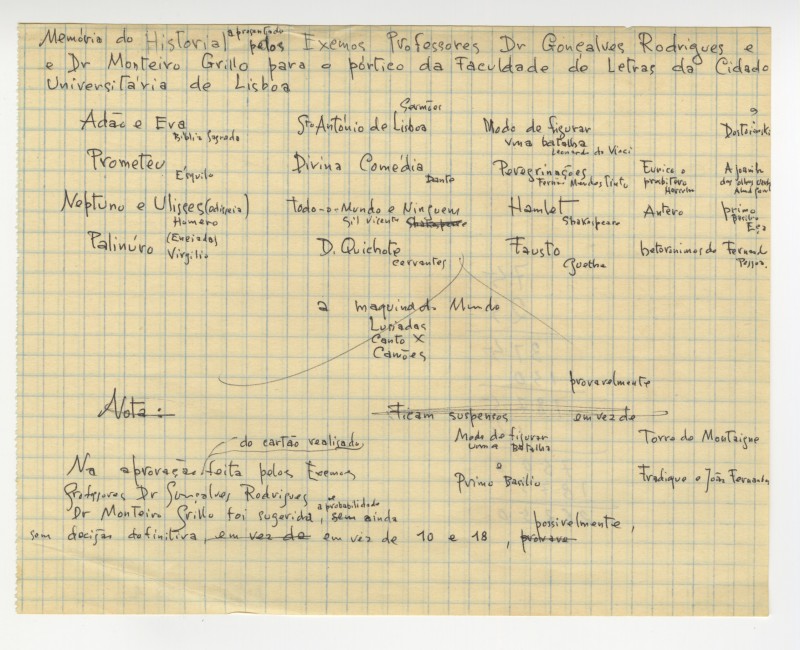 Memória do Historial apresentado pelos Exemos Professores Dr Gonçalves Rodrigues e
e Dr Monteiro Grillo para o pórtico da Faculdade de Letras da Cidade
Universitária de Lisboa
Sermões
Adão e Eva Sto António de Lisboa Modo de figurar Dostoievski
Biblia Sagrada uma batalha
Leonardo da Vinci
Prometeu Divina Comédia Peregrinações Eurico o A Joanita
Esquilo Dante Fernão Mendes Pinto presbitero dos olhos verdes
Herculano Almd Garrett
Neptuno e Ulisses (odisseia) Todo-o-Mundo e Ninguem Hamlet Antero primo
Homero Gil Vicente Shakespeare Shakespeare Basilio
Eça
Palinúro (Eneiada) D. Quichote Fausto heteronimos de Fernand
Virgilio cervantes Goethe Pessoa.
a maquina do Mundo
Lusiadas
Canto X
Camões
provavelmente
Nota: Ficam suspensos em vez de
do cartão realisado, Modo de figurar Torre de Montaigne
uma Batalha
Na aprovação feita pelos Exemos o Primo Basilio Fradique e João Fernandes
Professores Dr Gonçalves Rodrigues e
Dr Monteiro Grillo foi sugerida, a probabilidade sem ainda possivelmente,
sem decisão definitiva, em vez de em vez de 10 e 18, provave